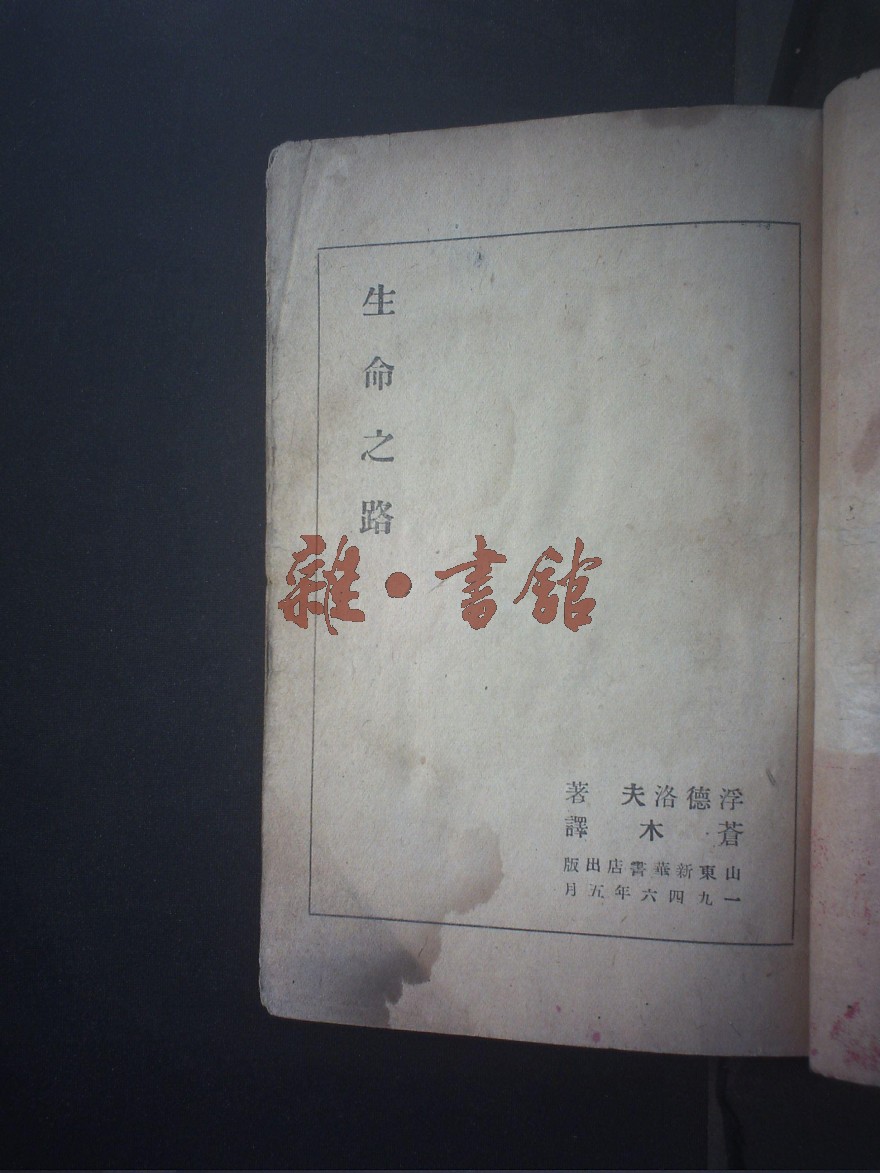 生命之路
雜·書館
浮德洛夫 著
蒼木 譯
山東新華書店出版
一九四六年五月